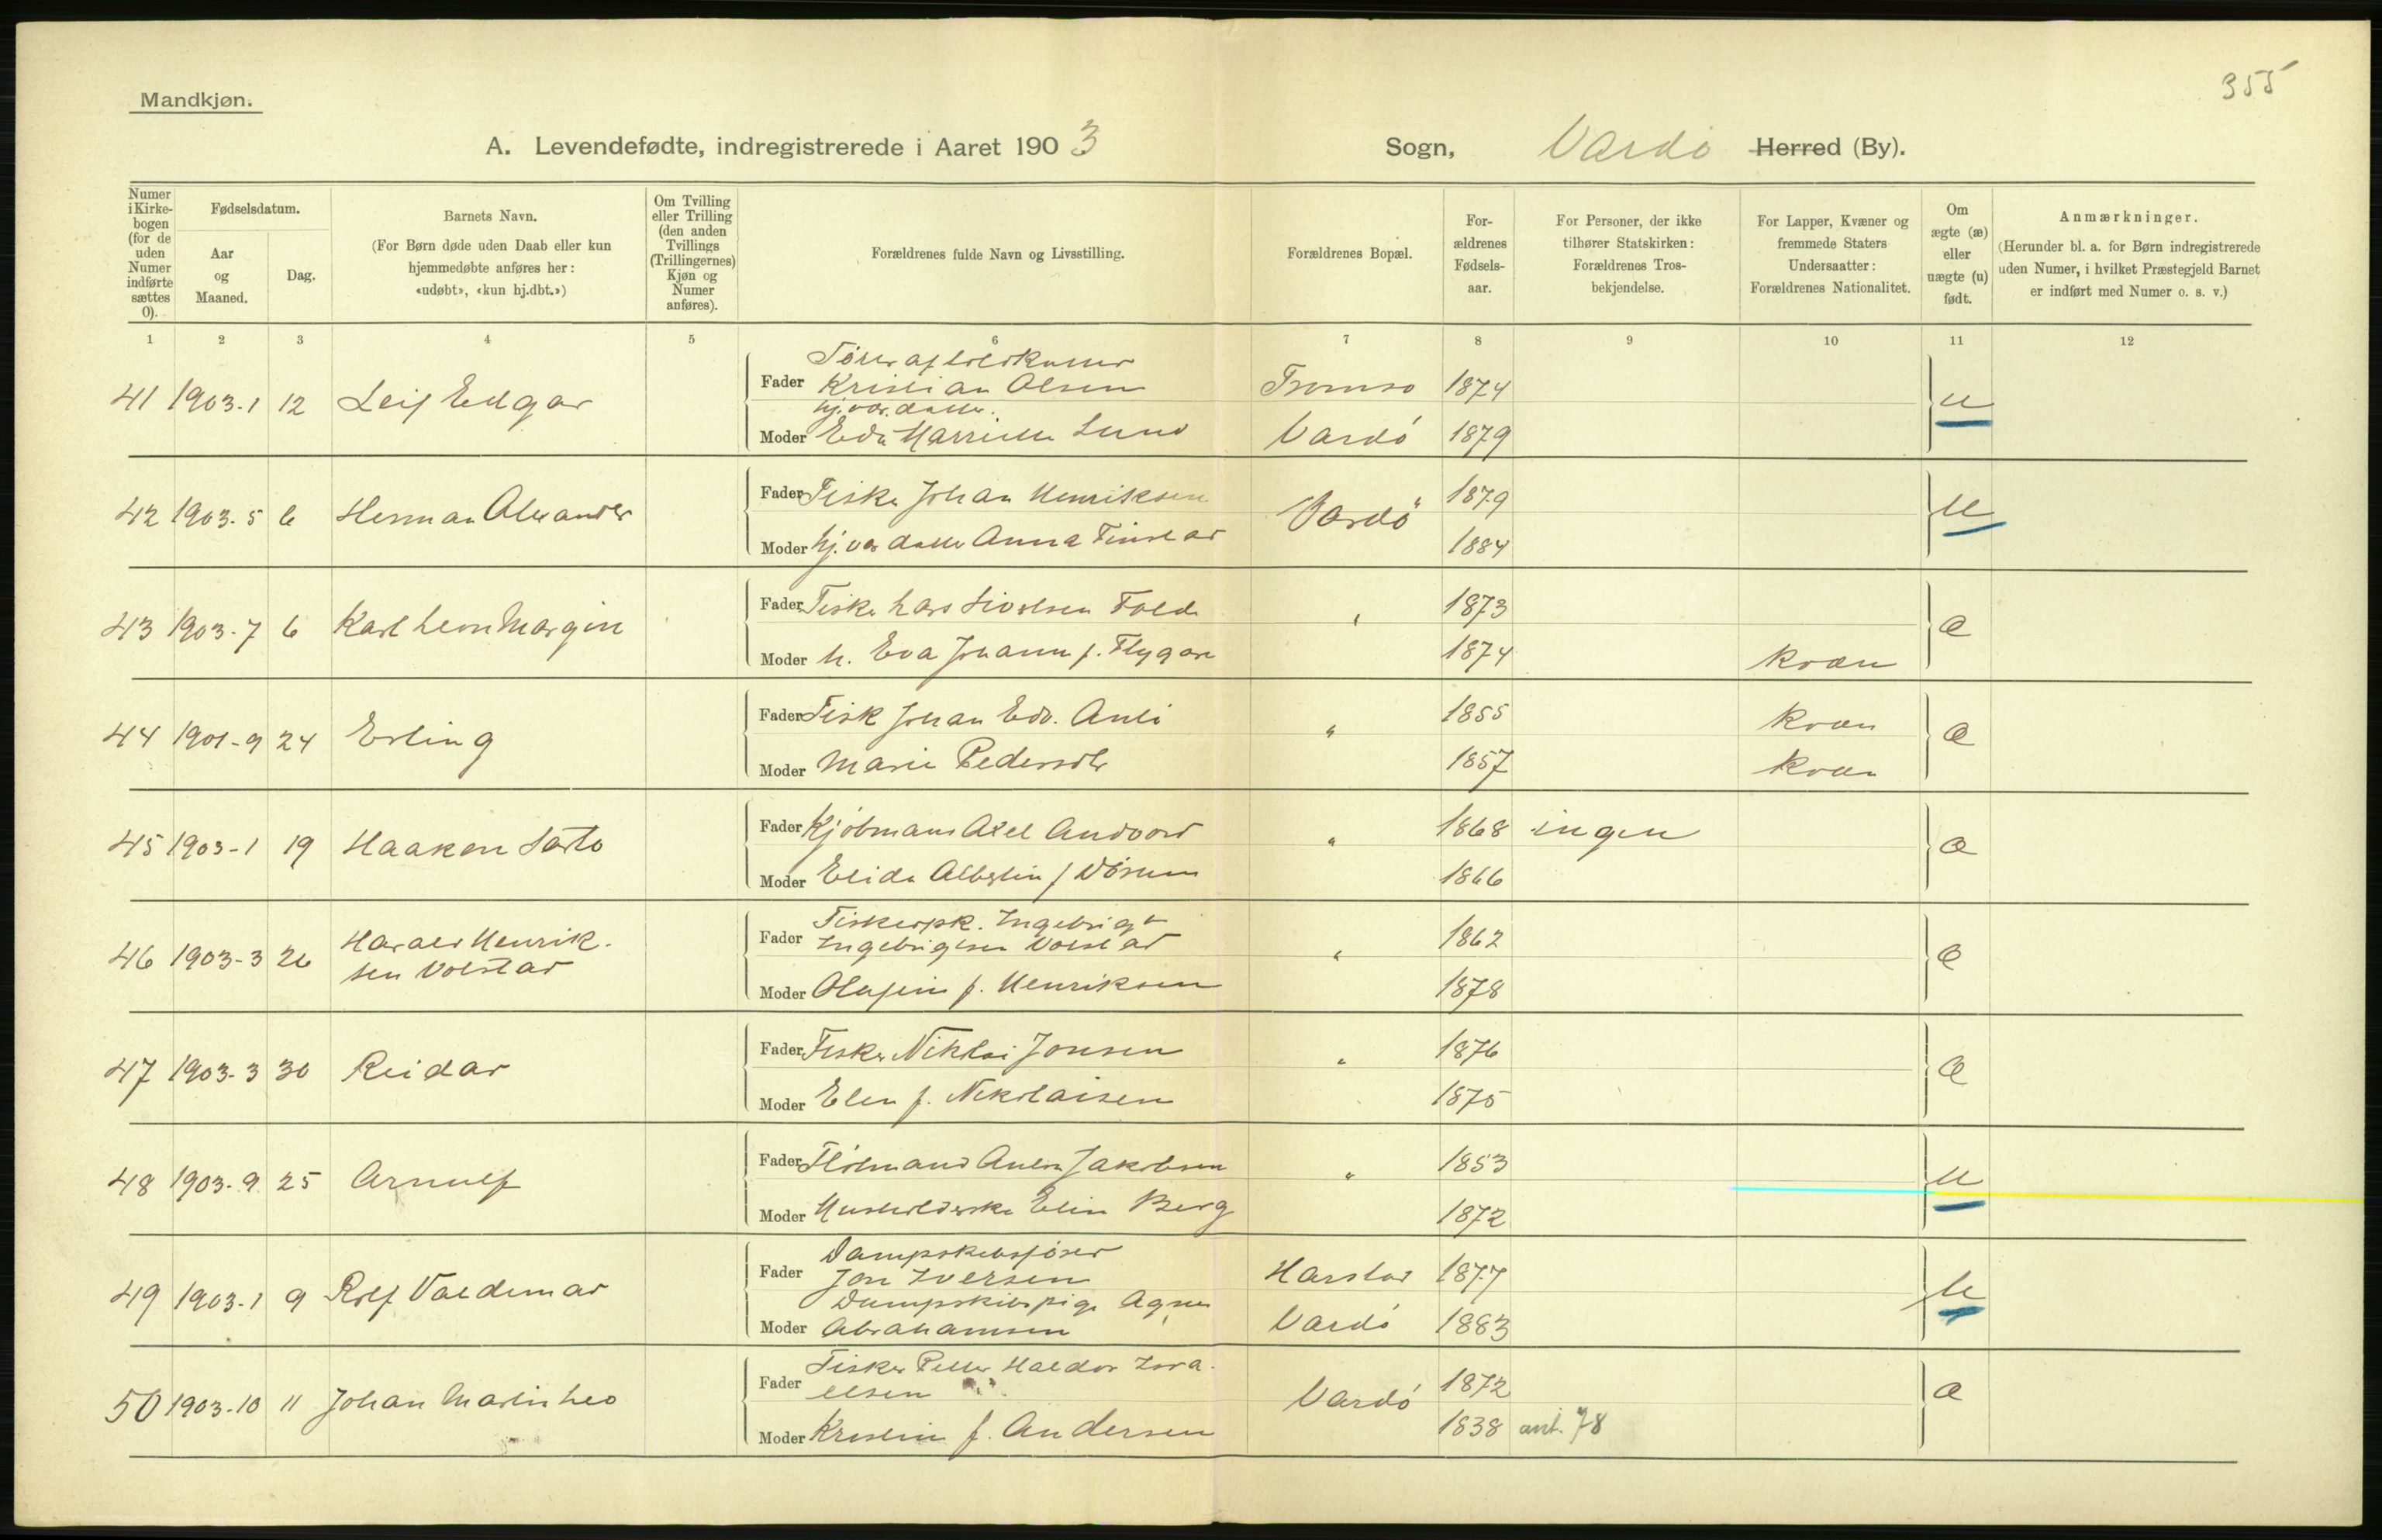 355
Mandkjøn.
A. Levendefødte, indregistrerede i Aaret 1903 Sogn, Vardø Herred (By).
Numer i Kirkebogen (for de uden Numer indførte sættes 0).
Fødselsdatum.
Aar og Maaned.
Dag.
Barnets Navn.
(For Børn døde uden Daab eller kun hjemmedøbte anføres her: «udøbt», «kun hj.dbt.»)
Om Tvilling eller Trilling (den anden Tvillings (Trillingernes) Kjøn og Numer anføres).
Forældrenes fulde Navn og Livsstilling.
Forældrenes Bopæl.
For-ældrenes Fødsels-aar.
For Personer, der ikke tilhører Statskirken: Forældrenes Tros-bekjendelse.
For Lapper, Kvæner og fremmede Staters Undersaatter: Forældrenes Nationalitet.
Om ægte (æ) eller uægte (u) født.
Anmærkninger.
(Herunder bl. a. for Børn indregistrerede uden Numer, i hvilket Præstegjeld Barnet er indført med Numer o. s. v.)
1 2 3 4 5 6 7 8 9 10 11 12
41 1903-1 12 Leif Edgar
Fader Kristian Olsen Tromsø 1874 u
hj.vær. datter
Moder Eda Lund Vardø 1879
42 1903-5 6 Herman Alexander
Fader Fisker Johan Henriksen Vardø 1879 u
Moder hj.vær datter Anna 1884
43 1903-7 6 Karl Leon Margin
Fader Fisker Lars Fold " 1873 æ
Moder h. Eva Johanne f. Flygare 1874 kvæn
44 1901-9 24 Erling
Fader Fisk Johan Edv. Anti " 1855 kvæn æ
Moder Marie Pedersdtr 1857 kvæn
45 1903-1 19 Haakon Sarto
Fader Kjøbmand Axel Andvord " 1868 ingen æ
Moder Elida Albertine f 1866
46 1903-3 26 Harald Henriksen Volstad
Fader Fiskeropk. Ingebrigt Ingebrigtsen Volstad " 1862 æ
Moder Olufine f. Henriksen 1878
47 1903-3 30 Reidar
Fader Fisker Nikolai Jonsen " 1876 æ
Moder Elen f. Nikolaisen 1875
48 1903-9 25 Arnulf
Fader Anton Jakobsen " 1853 u
Moder Husholderske Elin Berg 1872
49 1903-1 9 Rolf Valdemar
Fader Dampskibsfører Jon Iversen Harstad 1877 u
Dampskibspige Agnes
Moder Abrahamsen Vardø 1883
50 1903-10 11 Johan Martin Leo
Fader Fisker Petter Haldor Israelsen Vardø 1872 æ
Moder Kristine f. Andersen 1838 ant. 78